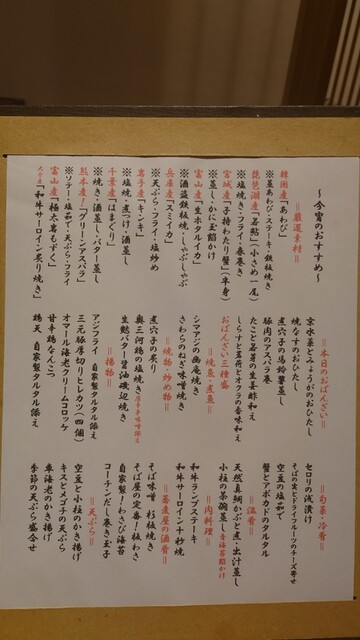 〜今宵のおすすめ〜
＝厳選素材＝
韓国産「あわび」
※蒸あわび・ステーキ・鉄板焼き
琵琶湖産「若鮎」(小さめ一尾)
※塩焼き・フライ・春巻き
宮城産「子持わたり蟹」(半身)
※蒸し・かに玉餡かけ
富山産「生ホタルイカ」
※酒盗鉄板焼・しゃぶしゃぶ
兵庫産「スミイカ」
※天ぷら・フライ・塩炒め
岩手産「キンキ」
※塩焼・煮つけ・酒蒸し
千葉産「はまぐり」
※焼き・酒蒸し・バター蒸し
熊本産「グリーンアスパラ」
※ソテー・塩茹で・天ぷら・フライ
富山産「極太岩もずく」
「和牛サーロイン炙り焼き」
＝本日のおばんざい＝
京水菜とみょうがのおひたし
焼なすのおひたし
煮穴子の馬鈴薯蒸し
豚肉のアスパラ巻
たこと若芽の生姜酢和え
しらすと茗荷とオクラの香味和え
おばんざい三種盛
＝焼魚・煮魚＝
シマアジの幽庵焼き
さわらのねぎ味噌焼き
＝焼物・炒め物＝
煮穴子の炙り
奥三河鶏の塩焼き
生麩バター醤油磯辺焼き
＝揚物＝
アジフライ 自家製タルタル添え
三元豚厚切りヒレカツ(四個)
オマール海老クリームコロッケ
甘辛鶏なんこつ
鶏天 自家製タルタル添え
＝旬菜 冷肴＝
セロリの浅漬け
そばの実とドライフルーツのチーズ寄せ
空豆の塩茹で
蟹とアボカドのタルタル
＝温肴＝
天然真鯛かぶと煮・出汁蒸し
小柱の茶碗蒸し
＝肉料理＝
和牛ランプステーキ
和牛サーロイン十秒焼
＝蕎麦屋の酒肴＝
そば味噌 杉板焼き
そば屋の定番！板わさ
自家製！わさび海苔
コーチンだし巻き玉子
＝天ぷら＝
空豆と小柱のかき揚げ
キスとメゴチの天ぷら
車海老のかき揚げ
季節の天ぷら盛合せ